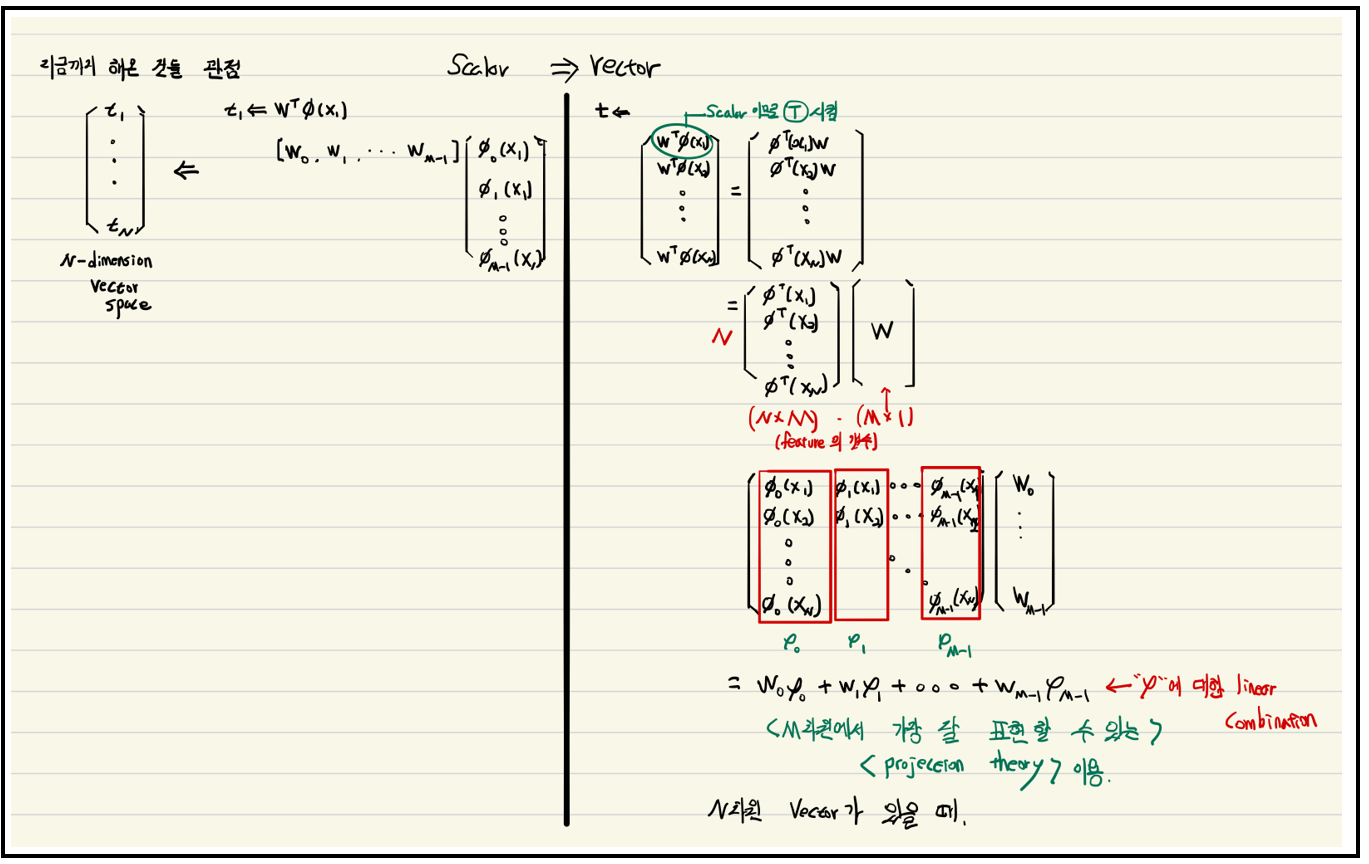 지금까지 해온 것들 관점
Scalar ⇒ vector
t₁
tₙ
⇐
N-dimension
vector
space
t₁ ⇐ Wᵀφ(x₁)
[W₀, W₁, ··· W_{M-1}]
φ₀(x₁)
φ₁(x₁)
φ_{M-1}(x₁)
t ⇐
Scalar 이므로 Ⓣ 시킴
Wᵀφ(x₁)
Wᵀφ(x₂)
Wᵀφ(x_N)
=
φᵀ(x₁)W
φᵀ(x₂)W
φᵀ(x_N)W
=
N
φᵀ(x₁)
φᵀ(x₂)
φᵀ(x_N)
W
(N×M) · (M×1)
(feature의 갯수)
φ₀(x₁) φ₁(x₁) ∘∘∘ φ_{M-1}(x₁) W₀
φ₀(x₂) φ₁(x₂) ∘∘∘ φ_{M-1}(x₂)
φ₀(x_N) φ_{M-1}(x_N) W_{M-1}
φ₀ φ₁ φ_{M-1}
= W₀φ₀ + W₁φ₁ + ∘∘∘ + W_{M-1}φ_{M-1} ← "φ"에 대한 linear
combination
<M차원에서 가장 잘 표현할 수 있는>
<projection theory> 이용.
N차원 Vector가 있을 때.